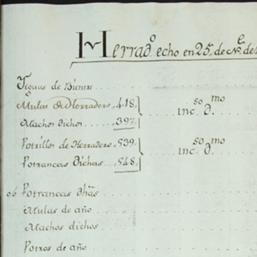 Herrado echo en 25. de Ne. de
Yeguas de
Mulas de Herradero .418.
Machos Dichos .397.
inc. so D. mo
Potrillos de Herradero .539.
Potrancas Dichas .548.
inc. so D. mo
Potrancas Dhãs
Mulas de año
Machos dichos
Potros de año